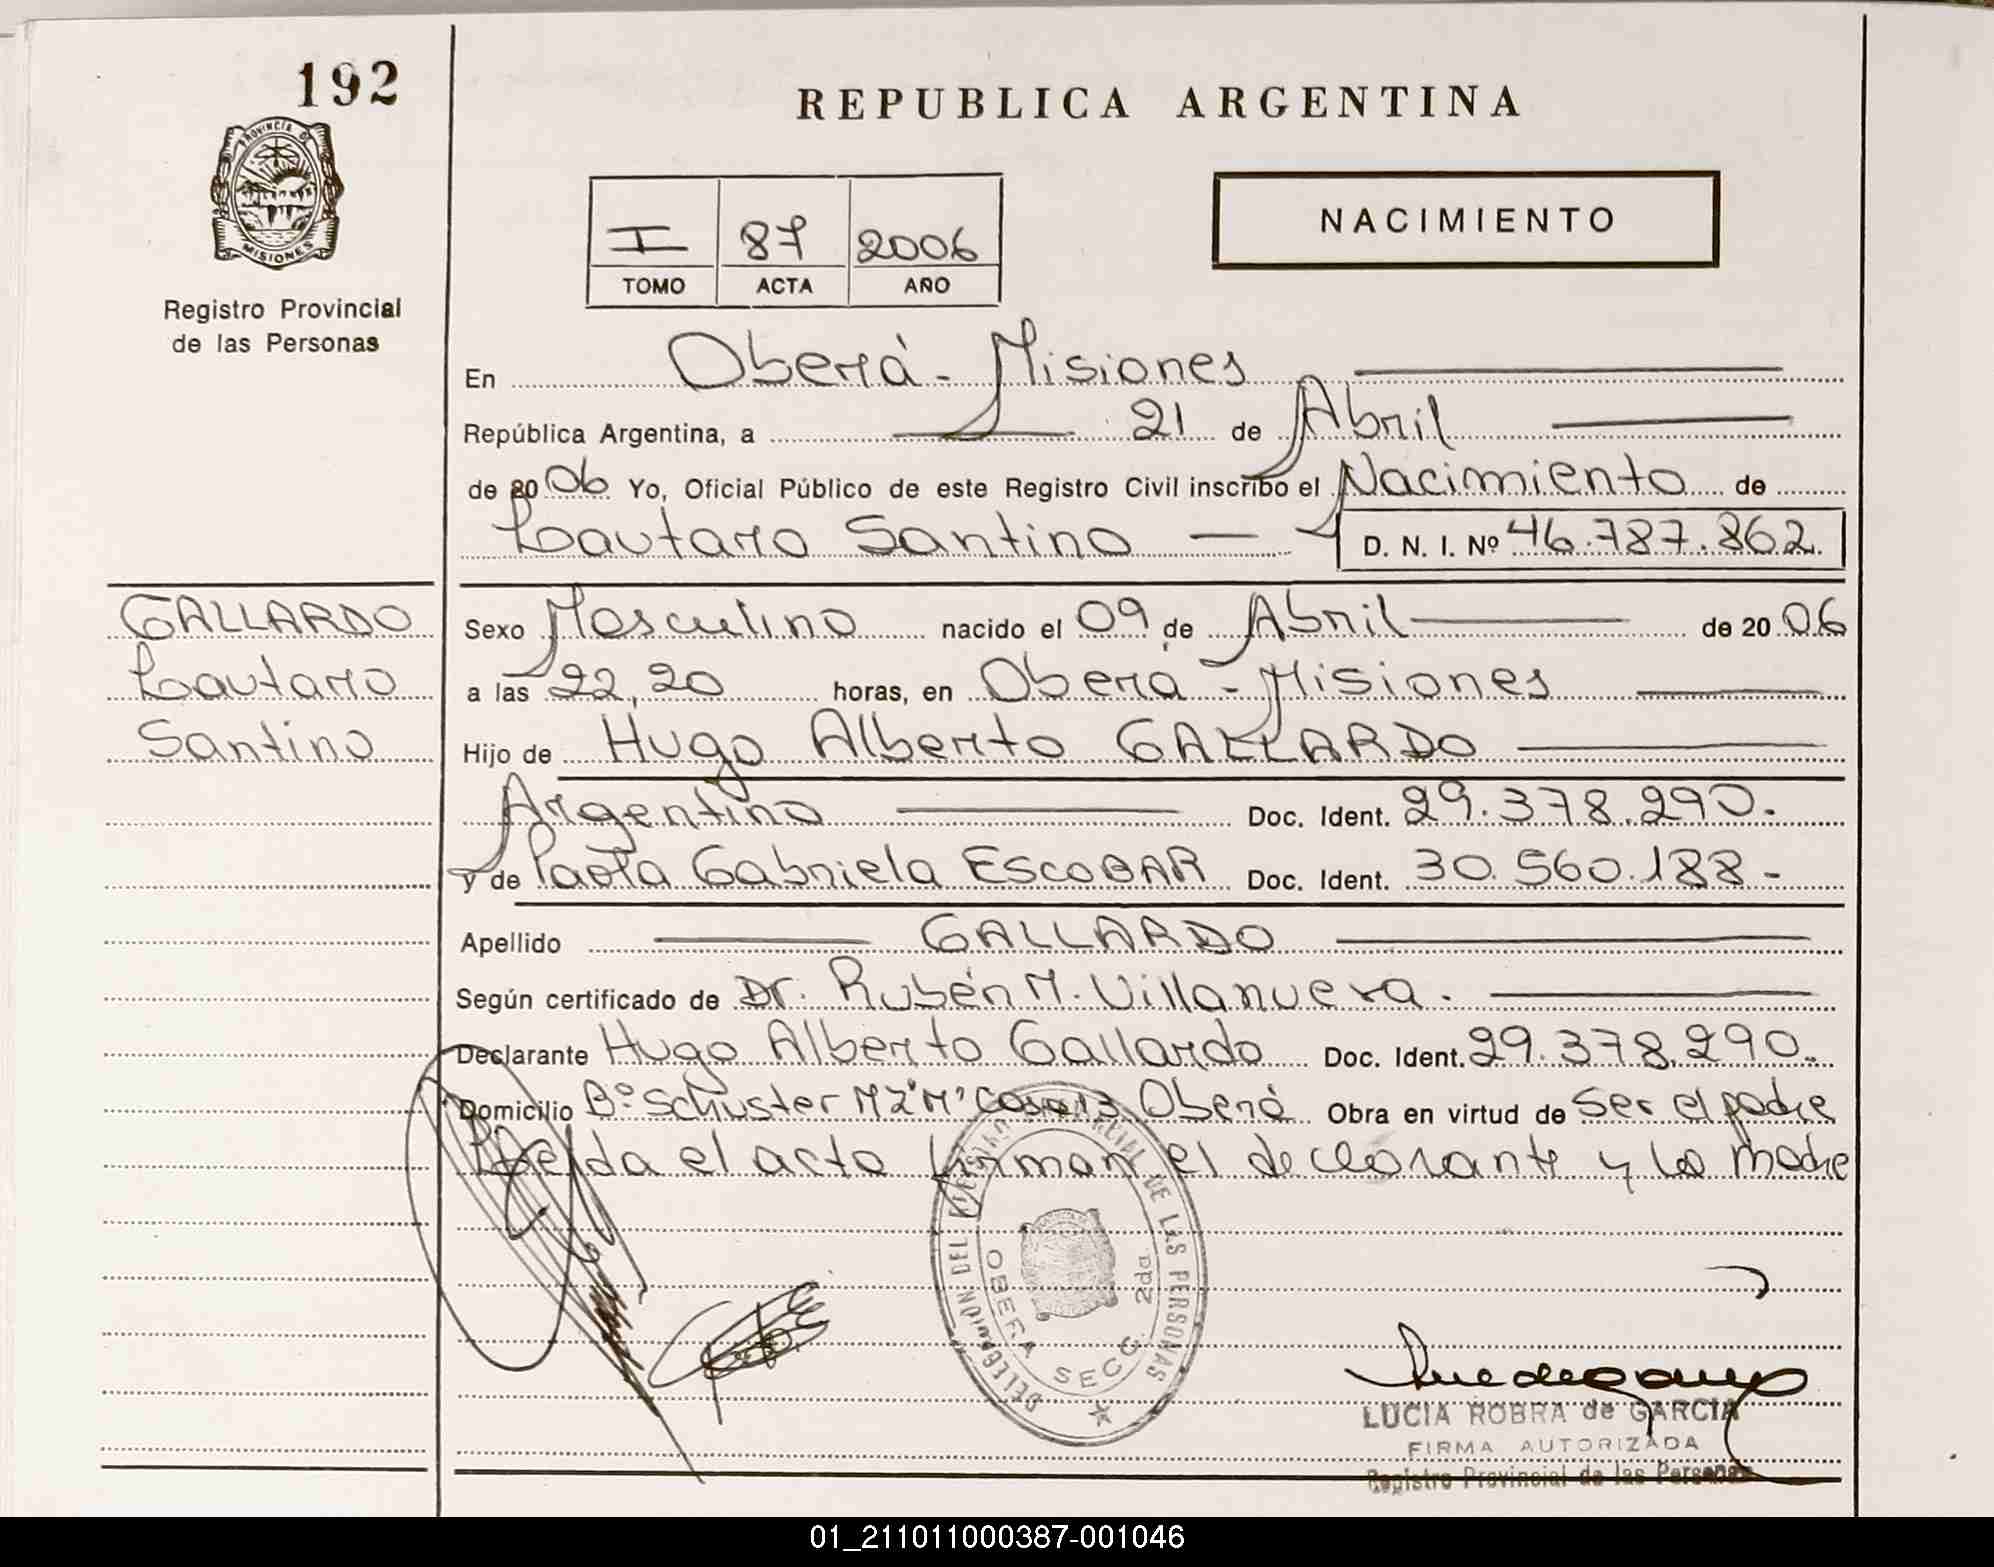 192
PROVINCIA DE
MISIONES
Registro Provincial
de las Personas
REPUBLICA ARGENTINA
I 87 2006
TOMO ACTA AÑO
NACIMIENTO
En Oberá - Misiones
República Argentina, a 21 de Abril
de 2006 Yo, Oficial Público de este Registro Civil inscribo el Nacimiento de
Lautaro Santino D. N. I. Nº 46.787.862
GALLARDO
Lautaro
Santino
Sexo Masculino nacido el 09 de Abril de 2006
a las 22,20 horas, en Oberá - Misiones
Hijo de Hugo Alberto GALLARDO
Argentino Doc. Ident. 29.378.290.
y de Paola Gabriela ESCOBAR Doc. Ident. 30.560.188-
Apellido GALLARDO
Según certificado de Dr. Rubén M. Villanueva.
Declarante Hugo Alberto Gallardo Doc. Ident. 29.378.290.
Domicilio Bº Schuster MZ "M" Casa 13 Oberá Obra en virtud de Ser el padre
Leida el acta firman el declarante y la madre
DELEGACIÓN DEL REGISTRO PROVINCIAL DE LAS PERSONAS
OBERA SECC. 2da.
LUCIA ROBRA de GARCIA
FIRMA AUTORIZADA
Registro Provincial de las Personas
01_211011000387-001046